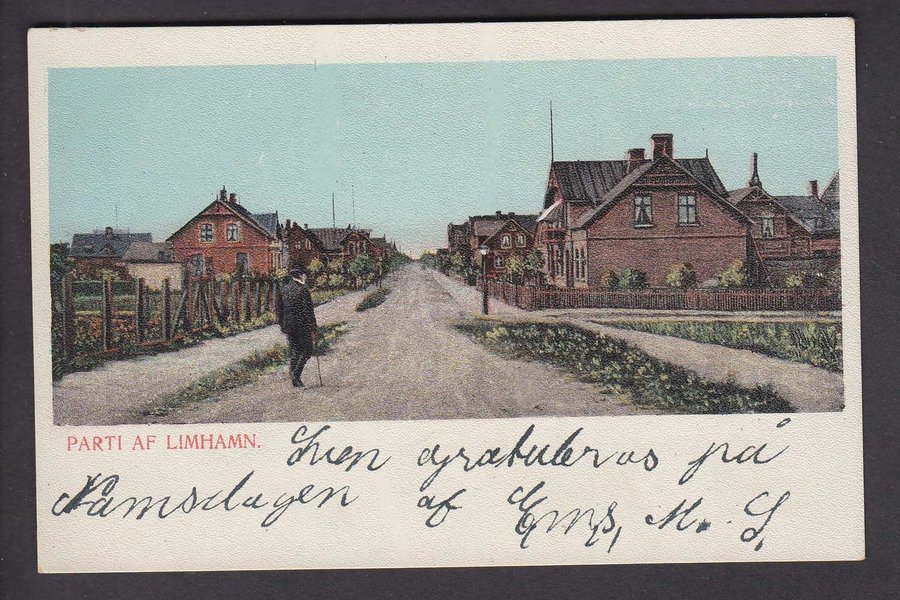 PARTI AF LIMHAMN.
Sven gratuleras på
Namsdagen af Ems, M. S,